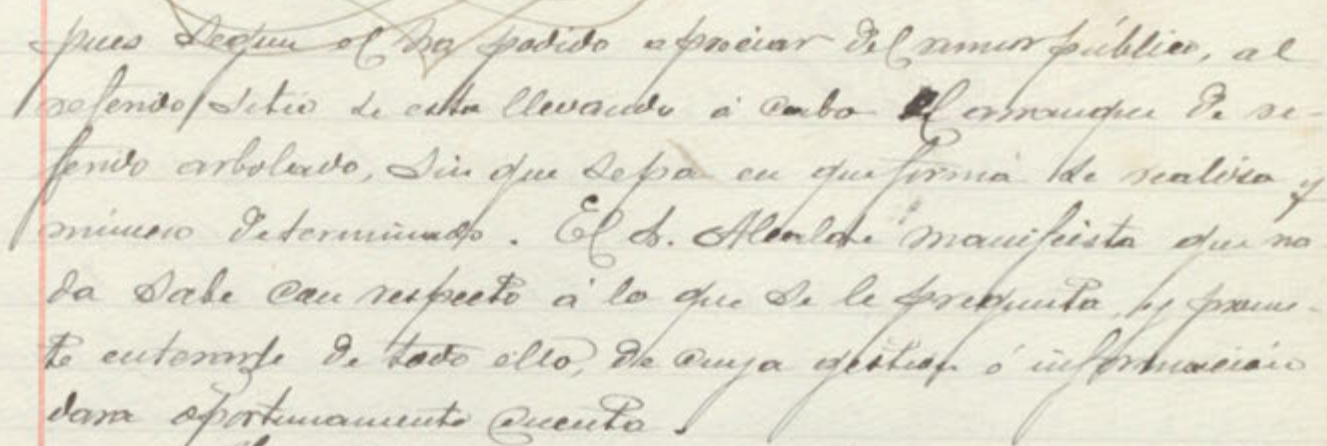 pues segun el ha podido apreciar del rumor público, al
referido sitio se esta llevando á cabo el arranque de re-
ferido arbolado, sin que sepa en que forma se realiza y
número determinado. El S. Alcalde manifiesta que na
da sabe con respecto á lo que se le pregunta, y prome-
te enterarse de todo ello, de cuya gestion ó información
dara oportunamente cuenta.